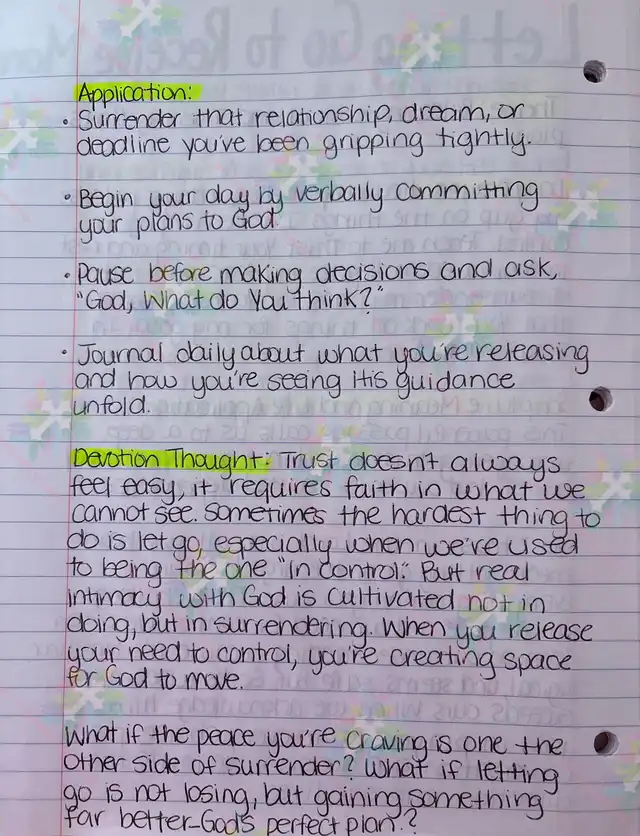 Application:
• Surrender that relationship, dream, or
deadline you've been gripping tightly.
• Begin your day by verbally committing
your plans to God.
• Pause before making decisions and ask,
"God, What do You think?"
• Journal daily about what you're releasing
and how you're seeing His guidance
unfold.
Devotion Thought: Trust doesn't always
feel easy, it requires faith in what we
cannot see. Sometimes the hardest thing to
do is let go, especially when we're used
to being the one "in control." But real
intimacy with God is cultivated not in
doing, but in surrendering. When you release
your need to control, you're creating space
for God to move.
What if the peace you're craving is one the
other side of surrender? What if letting
go is not losing, but gaining something
far better-God's perfect plan.?